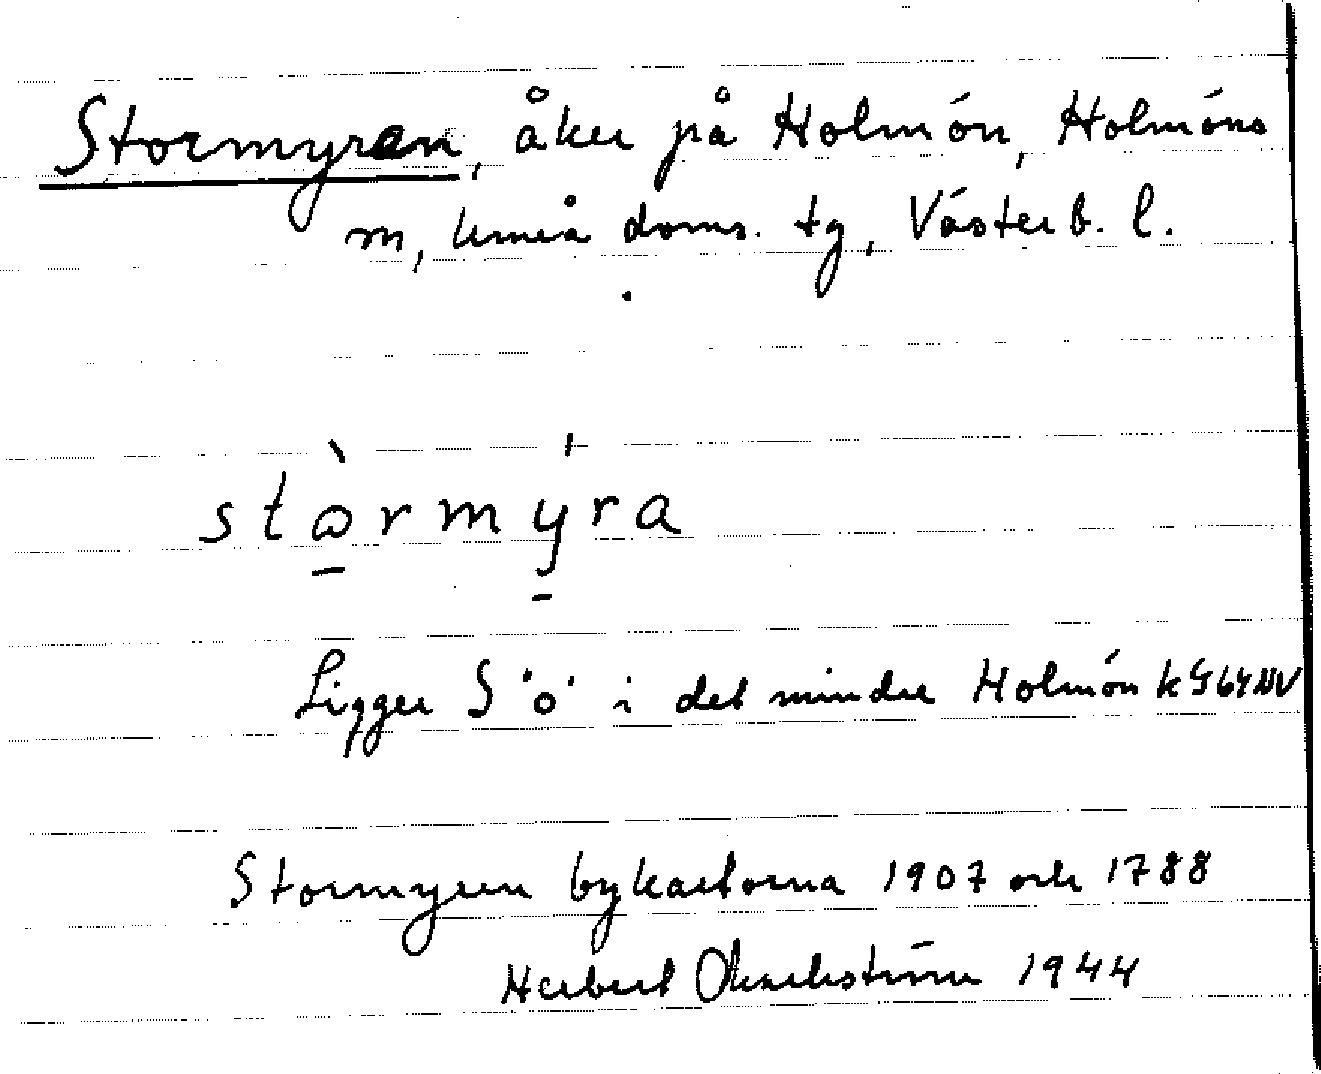 Stormyran, åker på Holmön, Holmöns
m, Umeå doms. tg, Västerb. l.
stɷ̀rmýra
Ligger S "o" i det mindre Holmön
Stormyren bykartorna 1907 och 1788
Herbert 1944